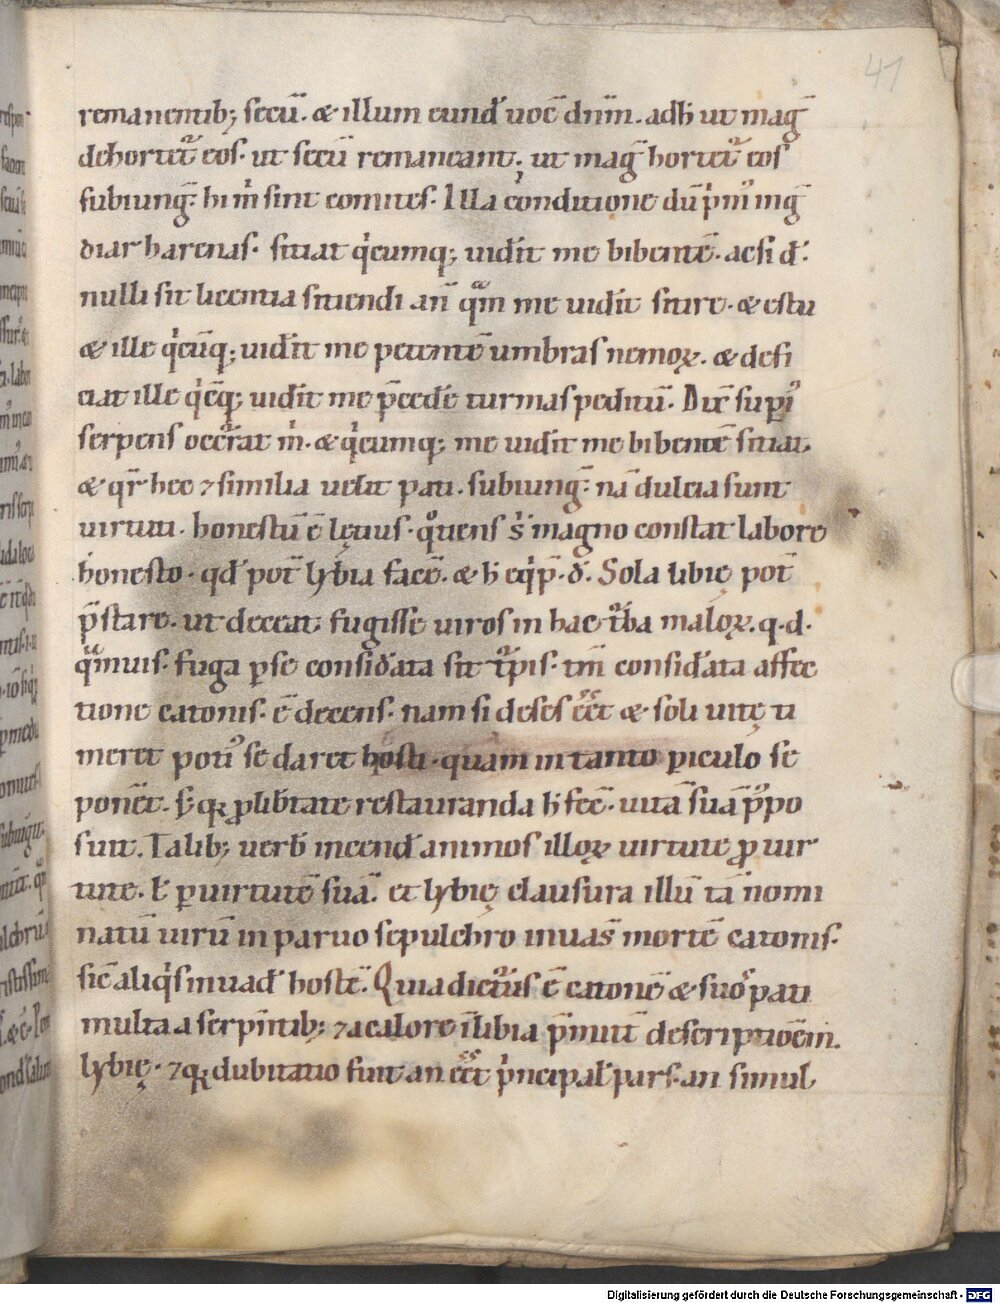 41
remanentib; secū. & illum eund̄ uocē dn̄m. adh̄ ut maḡ
dehortet᷑ eos. ut secū remaneant. ut maḡ hortet᷑ eos
subiunḡ. hi m̄ sint comites. Illa conditione dū pͥmꝰ inḡ
diar harenas. sitiat qͥcumq; uidīt me bibentē. ac si d̄.
nulli sit licentia sitiendi an̄ qᵃm me uidīt sitire. & estu
& ille qͥcūq; uidīt me petentē umbras nemoꝝ. & defi
ciat ille qͥcq; uidīt me p̄ced̄e turmas peditū. Dix̄ supͥ
serpens occr̄rat m̄. & qͥcumq; me uidīt me bibentē sitiat
& qr̄ hec ⁊ similia uelit pati. subiunḡ. nā dulcia sunt
uirtuti. honestū ē lętius. qͦtiens s̄ magno constat labore
honesto. qd̄ pot̄ lybia facē. & h̄ eqͥp̄. d̄. Sola libię pot̄
p̄stare. ut deceat fugisse uiros in hac tͬba maloꝝ. q. d.
qᵃmuis fuga ꝑ se consid̄ata sit tͬpis. tm̄ consid̄ata affec
tione catonis. ē decens. nam si deses eēt & soli uitę ti
meret potiꝰ se daret hosti. quam in tanto ꝑiculo se
ponēt. s; qꝛ ꝓ lib̄tate restauranda h̄ fec̄. uitā suā p̄po
suit. Talib; uerb̄ incend̄ animos illoꝝ uirtute ꝓ uir
tute. ł ꝑ uirtutē suā. et lybię clausura illū tā nomi
natū uirū in paruo sepulchro inuas̄ mortē catonis.
sic̄ aliqͥs inuad̄ hostē. Quia dictꝰus ē catonē & suoͦ pati
multa a serpn̄tib; ⁊ a calore ī libia p̄mitt̄ descriptiōem.
lybię. ⁊ qꝛ dubitatio fuit an eēt pͥncipal̄ pars. an simul
Digitalisierung gefördert durch die Deutsche Forschungsgemeinschaft - DFG